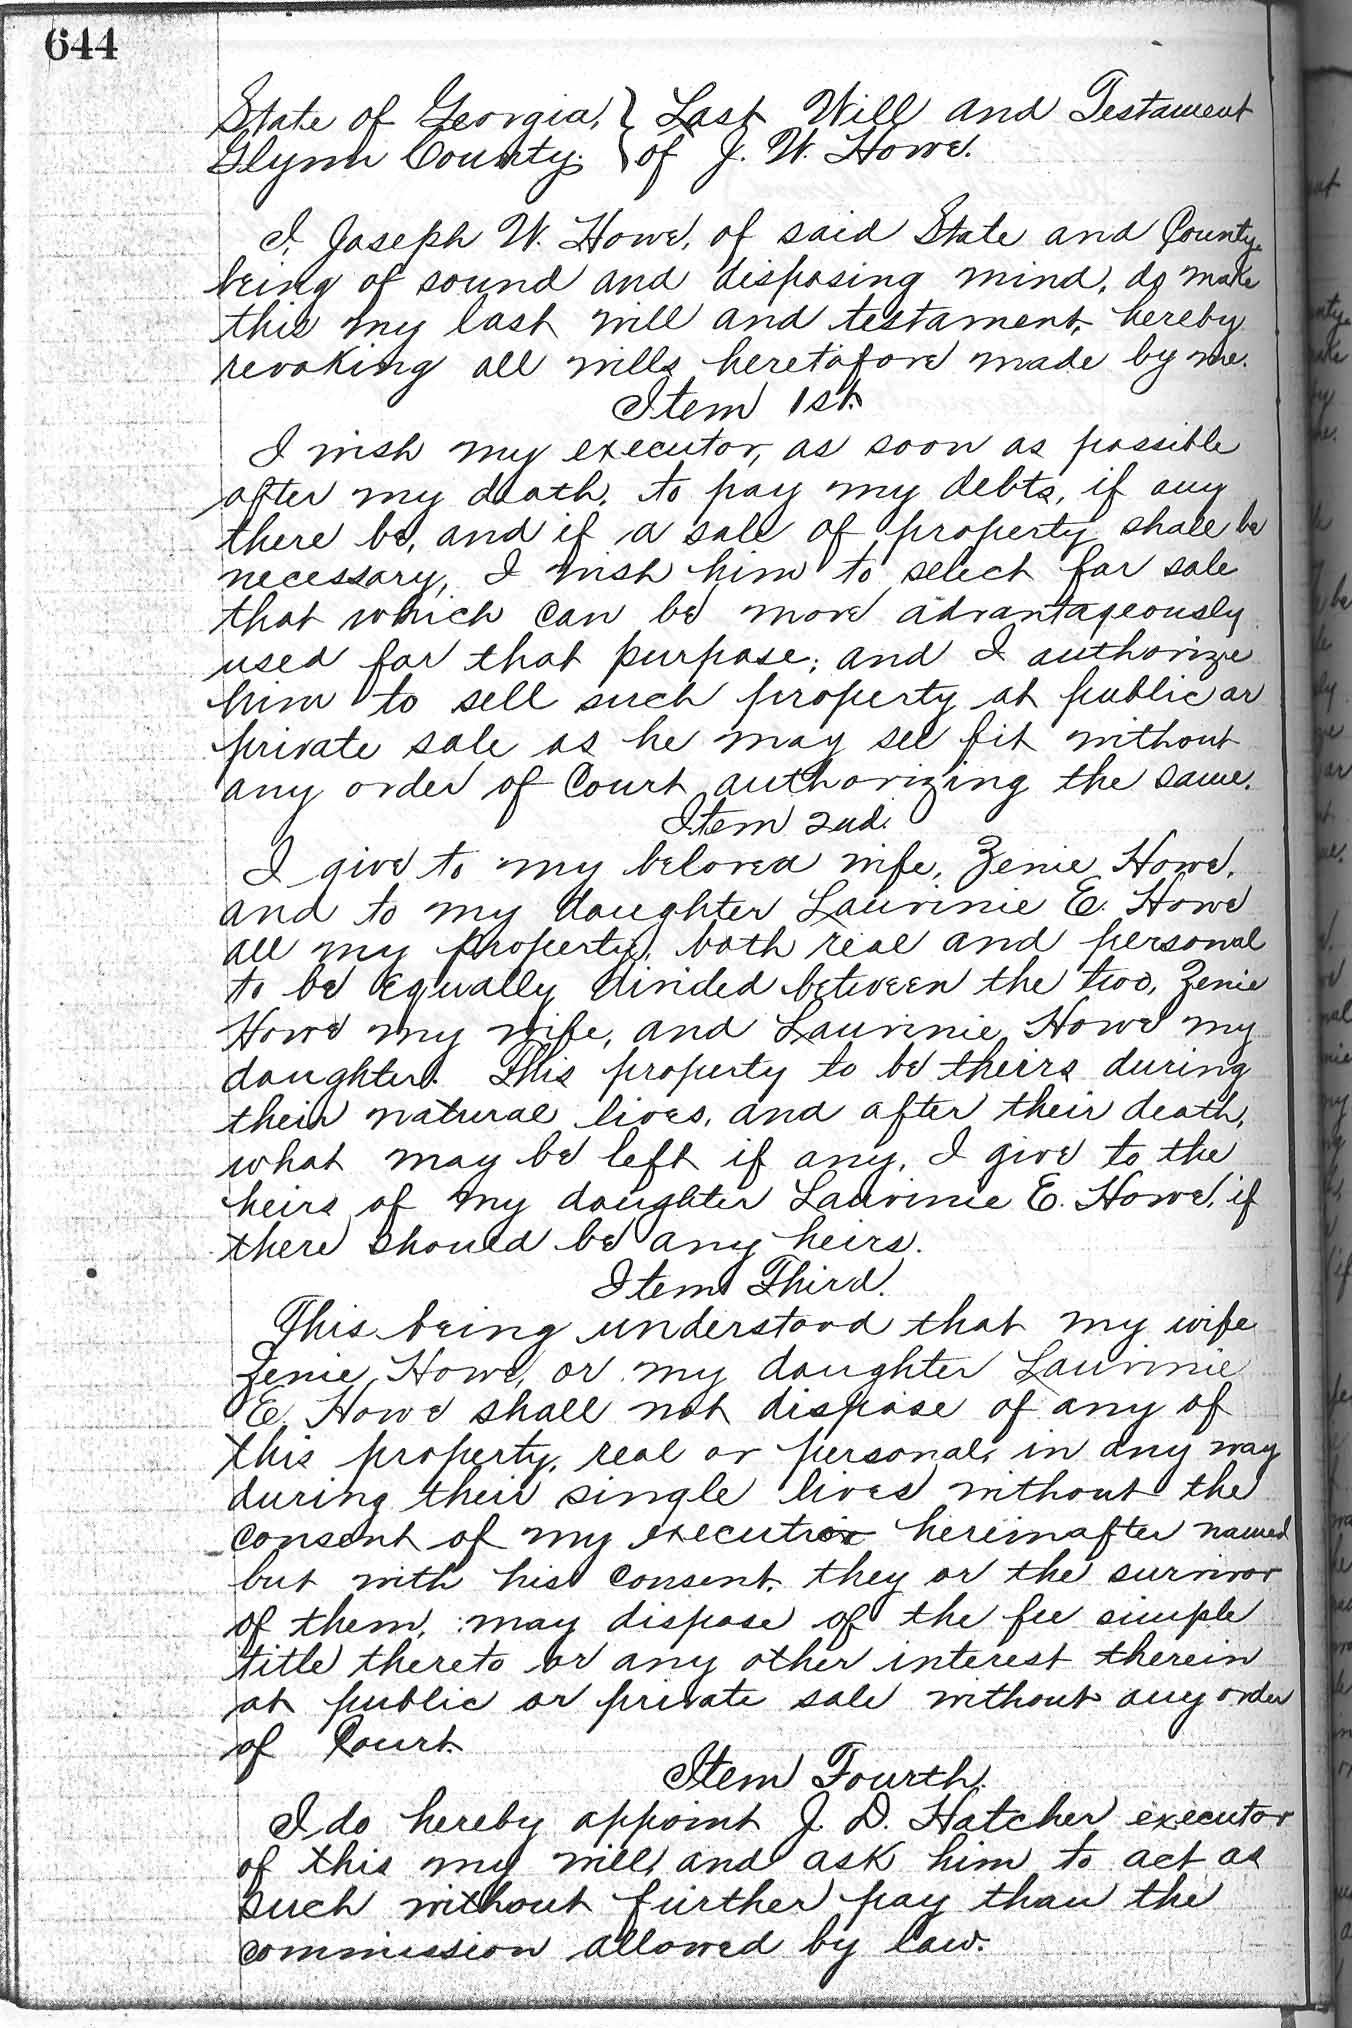 644
State of Georgia, } Last Will and Testament
Glynn County. } of J. W. Howe.
I, Joseph W. Howe, of said State and County,
being of sound and disposing mind, do make
this my last will and testament, hereby
revoking all wills heretofore made by me.
Item 1st.
I wish my executor, as soon as possible
after my death, to pay my debts, if any
there be, and if a sale of property shall be
necessary, I wish him to select for sale
that which can be more advantageously
used for that purpose; and I authorize
him to sell such property at public or
private sale as he may see fit without
any order of Court authorizing the same.
Item 2nd.
I give to my beloved wife, Zenie Howe,
and to my daughter Lauvinie E. Howe
all my property, both real and personal
to be equally divided between the two, Zenie
Howe my wife, and Lauvinie Howe my
daughter. This property to be theirs during
their natural lives, and after their death,
what may be left if any, I give to the
heirs of my daughter Lauvinie E. Howe, if
there should be any heirs.
Item Third.
This being understood that my wife
Zenie Howe, or my daughter Lauvinie
E. Howe shall not dispose of any of
this property, real or personal, in any way
during their single lives without the
consent of my executrix hereinafter named
but with his consent, they or the survivor
of them, may dispose of the fee simple
title thereto or any other interest therein
at public or private sale without any order
of Court.
Item Fourth.
I do hereby appoint J. D. Hatcher executor
of this my will, and ask him to act as
such without further pay than the
commission allowed by law.